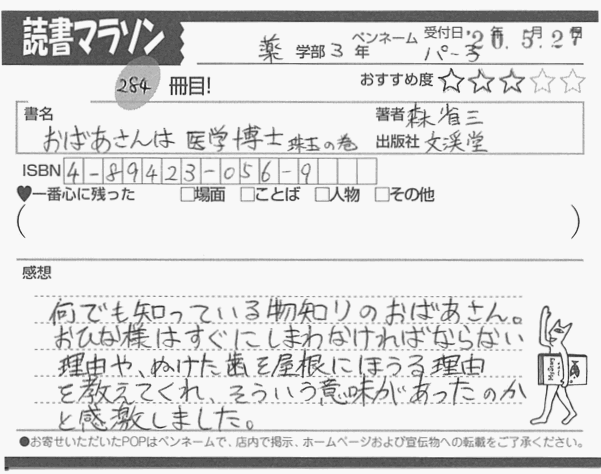 読書マラソン
薬 学部 3 年 ペンネーム 受付日
パー子 '20.5.27
年 月 日
284 冊目! おすすめ度 ☆☆☆☆☆
書名 著者 森省三
おばあさんは 医学博士 珠玉の巻 出版社 文渓堂
ISBN 4-89423-056-9
♥一番心に残った □場面 □ことば □人物 □その他
( )
感想
何でも知っている物知りのおばあさん。
おひな様はすぐにしまわなければならない
理由や、ぬけた歯を屋根にほうる理由
を教えてくれ、そういう意味があったのか
と感激しました。
●お寄せいただいたPOPはペンネームで、店内で掲示、ホームページおよび宣伝物への転載をご了承ください。